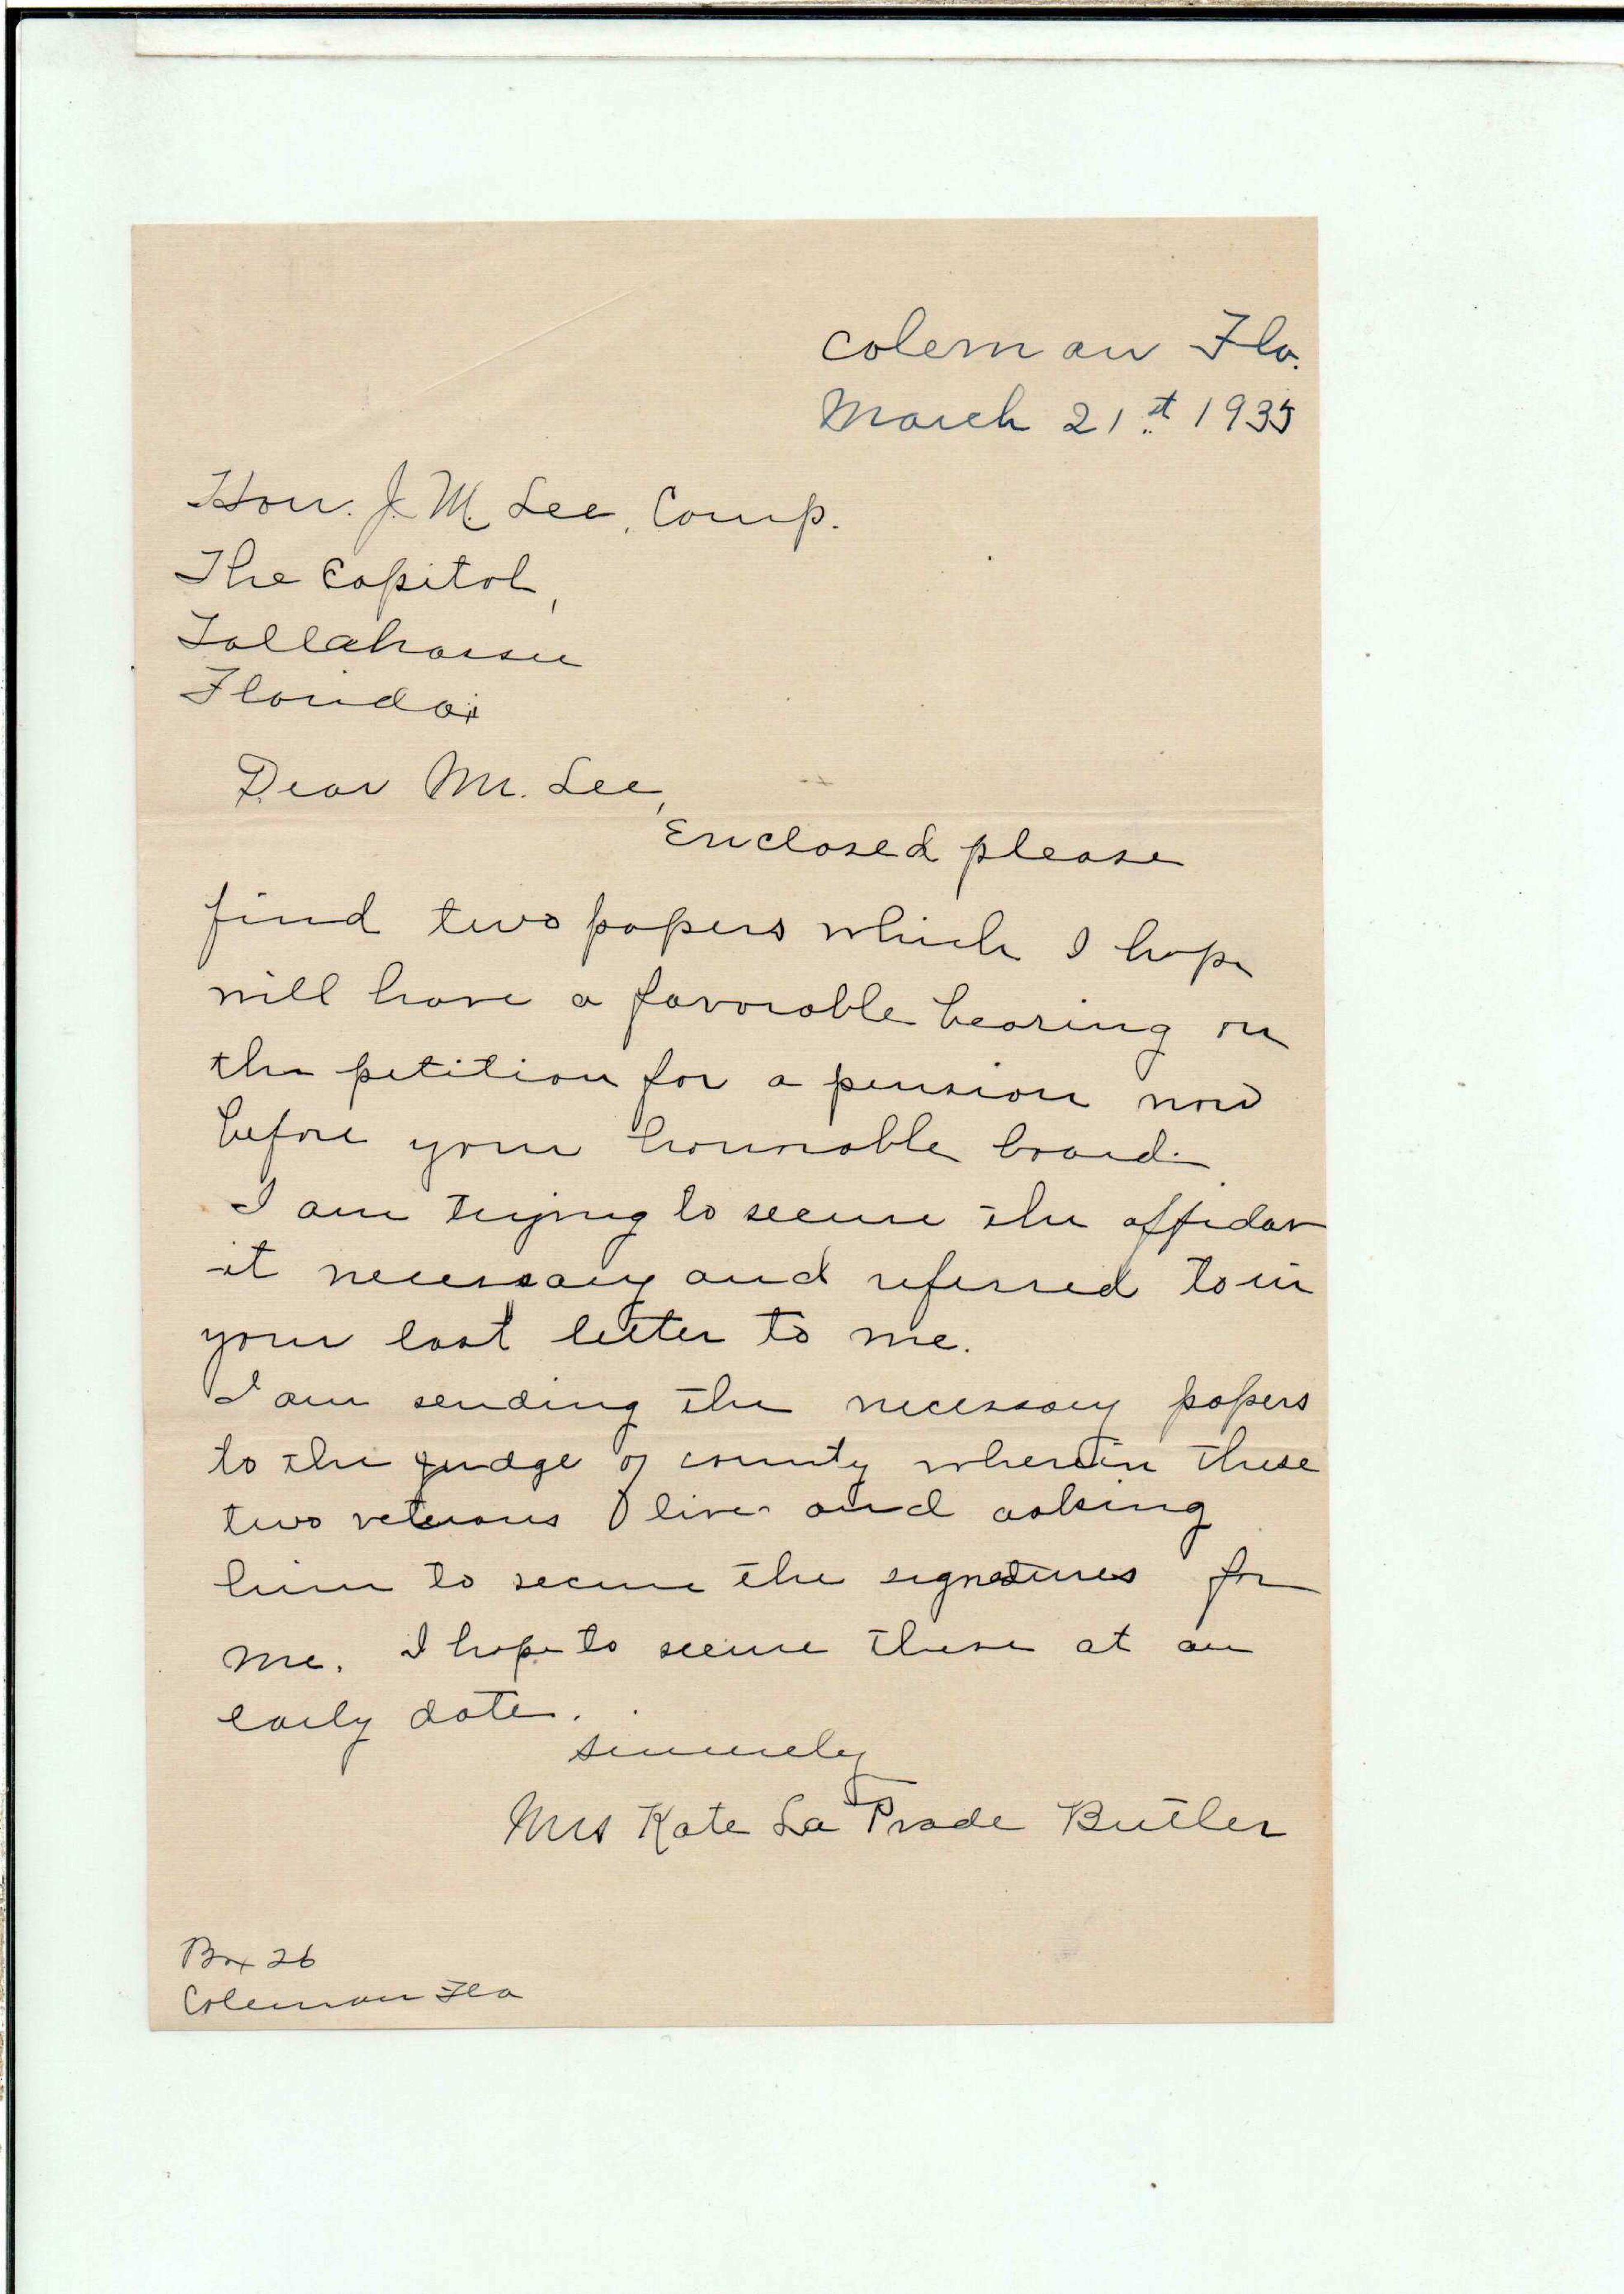 Coleman Fla.
March 21st 1935
Hon. J. M. Lee, Comp.
The Capitol,
Tallahassee
Florida
Dear Mr. Lee,
Enclosed please
find two papers which I hope
will have a favorable bearing on
the petition for a pension now
before your honorable board.
I am trying to secure the affidav
-it necessary and referred to in
your last letter to me.
I am sending the necessary papers
to the judge of county wherein these
two veterans live and asking
him to secure the signatures for
me. I hope to secure these at an
early date.
Sincerely
Mrs Kate La Prade Butler
Box 26
Coleman Fla